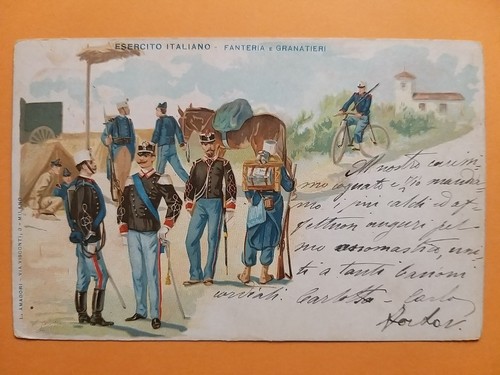 ESERCITO ITALIANO - FANTERIA E GRANATIERI
Al nostro carissi-
mo cognato e zio mandia-
mo i più caldi ed af-
fettuosi auguri pel
suo onomastico, uni-
ti a tanti bacioni
cordiali. Carlotta - Carlo
L. AMADORI - VIA VISCONTI, MILANO